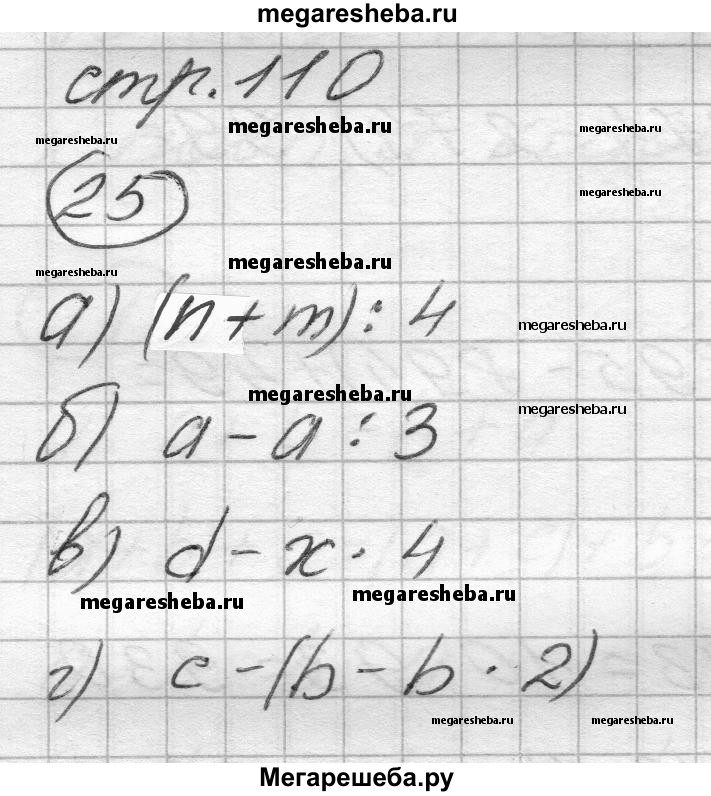 megaresheba.ru
стр. 110
megaresheba.ru megaresheba.ru megaresheba.ru
25
megaresheba.ru
megaresheba.ru megaresheba.ru
а) (n + m) : 4
megaresheba.ru
megaresheba.ru megaresheba.ru
б) a - a : 3
в) d - x · 4
megaresheba.ru megaresheba.ru
г) c - (b - b · 2)
megaresheba.ru megaresheba.ru
Мегарешеба.ру